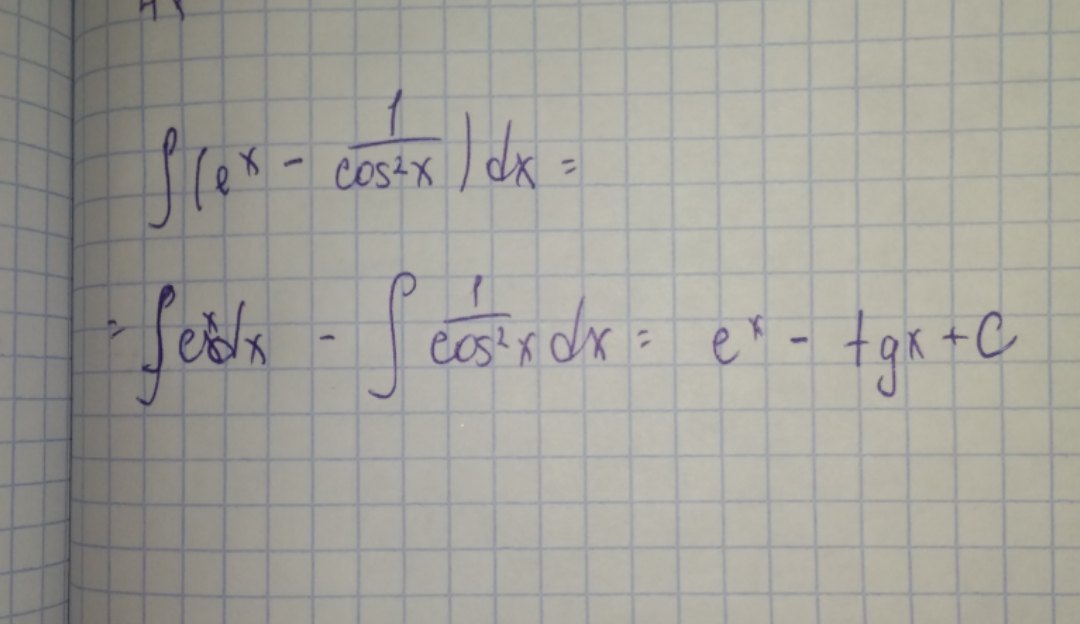 ∫(e^x - 1/cos²x) dx =
= ∫e^x dx - ∫ 1/cos²x dx = e^x - tgx + C